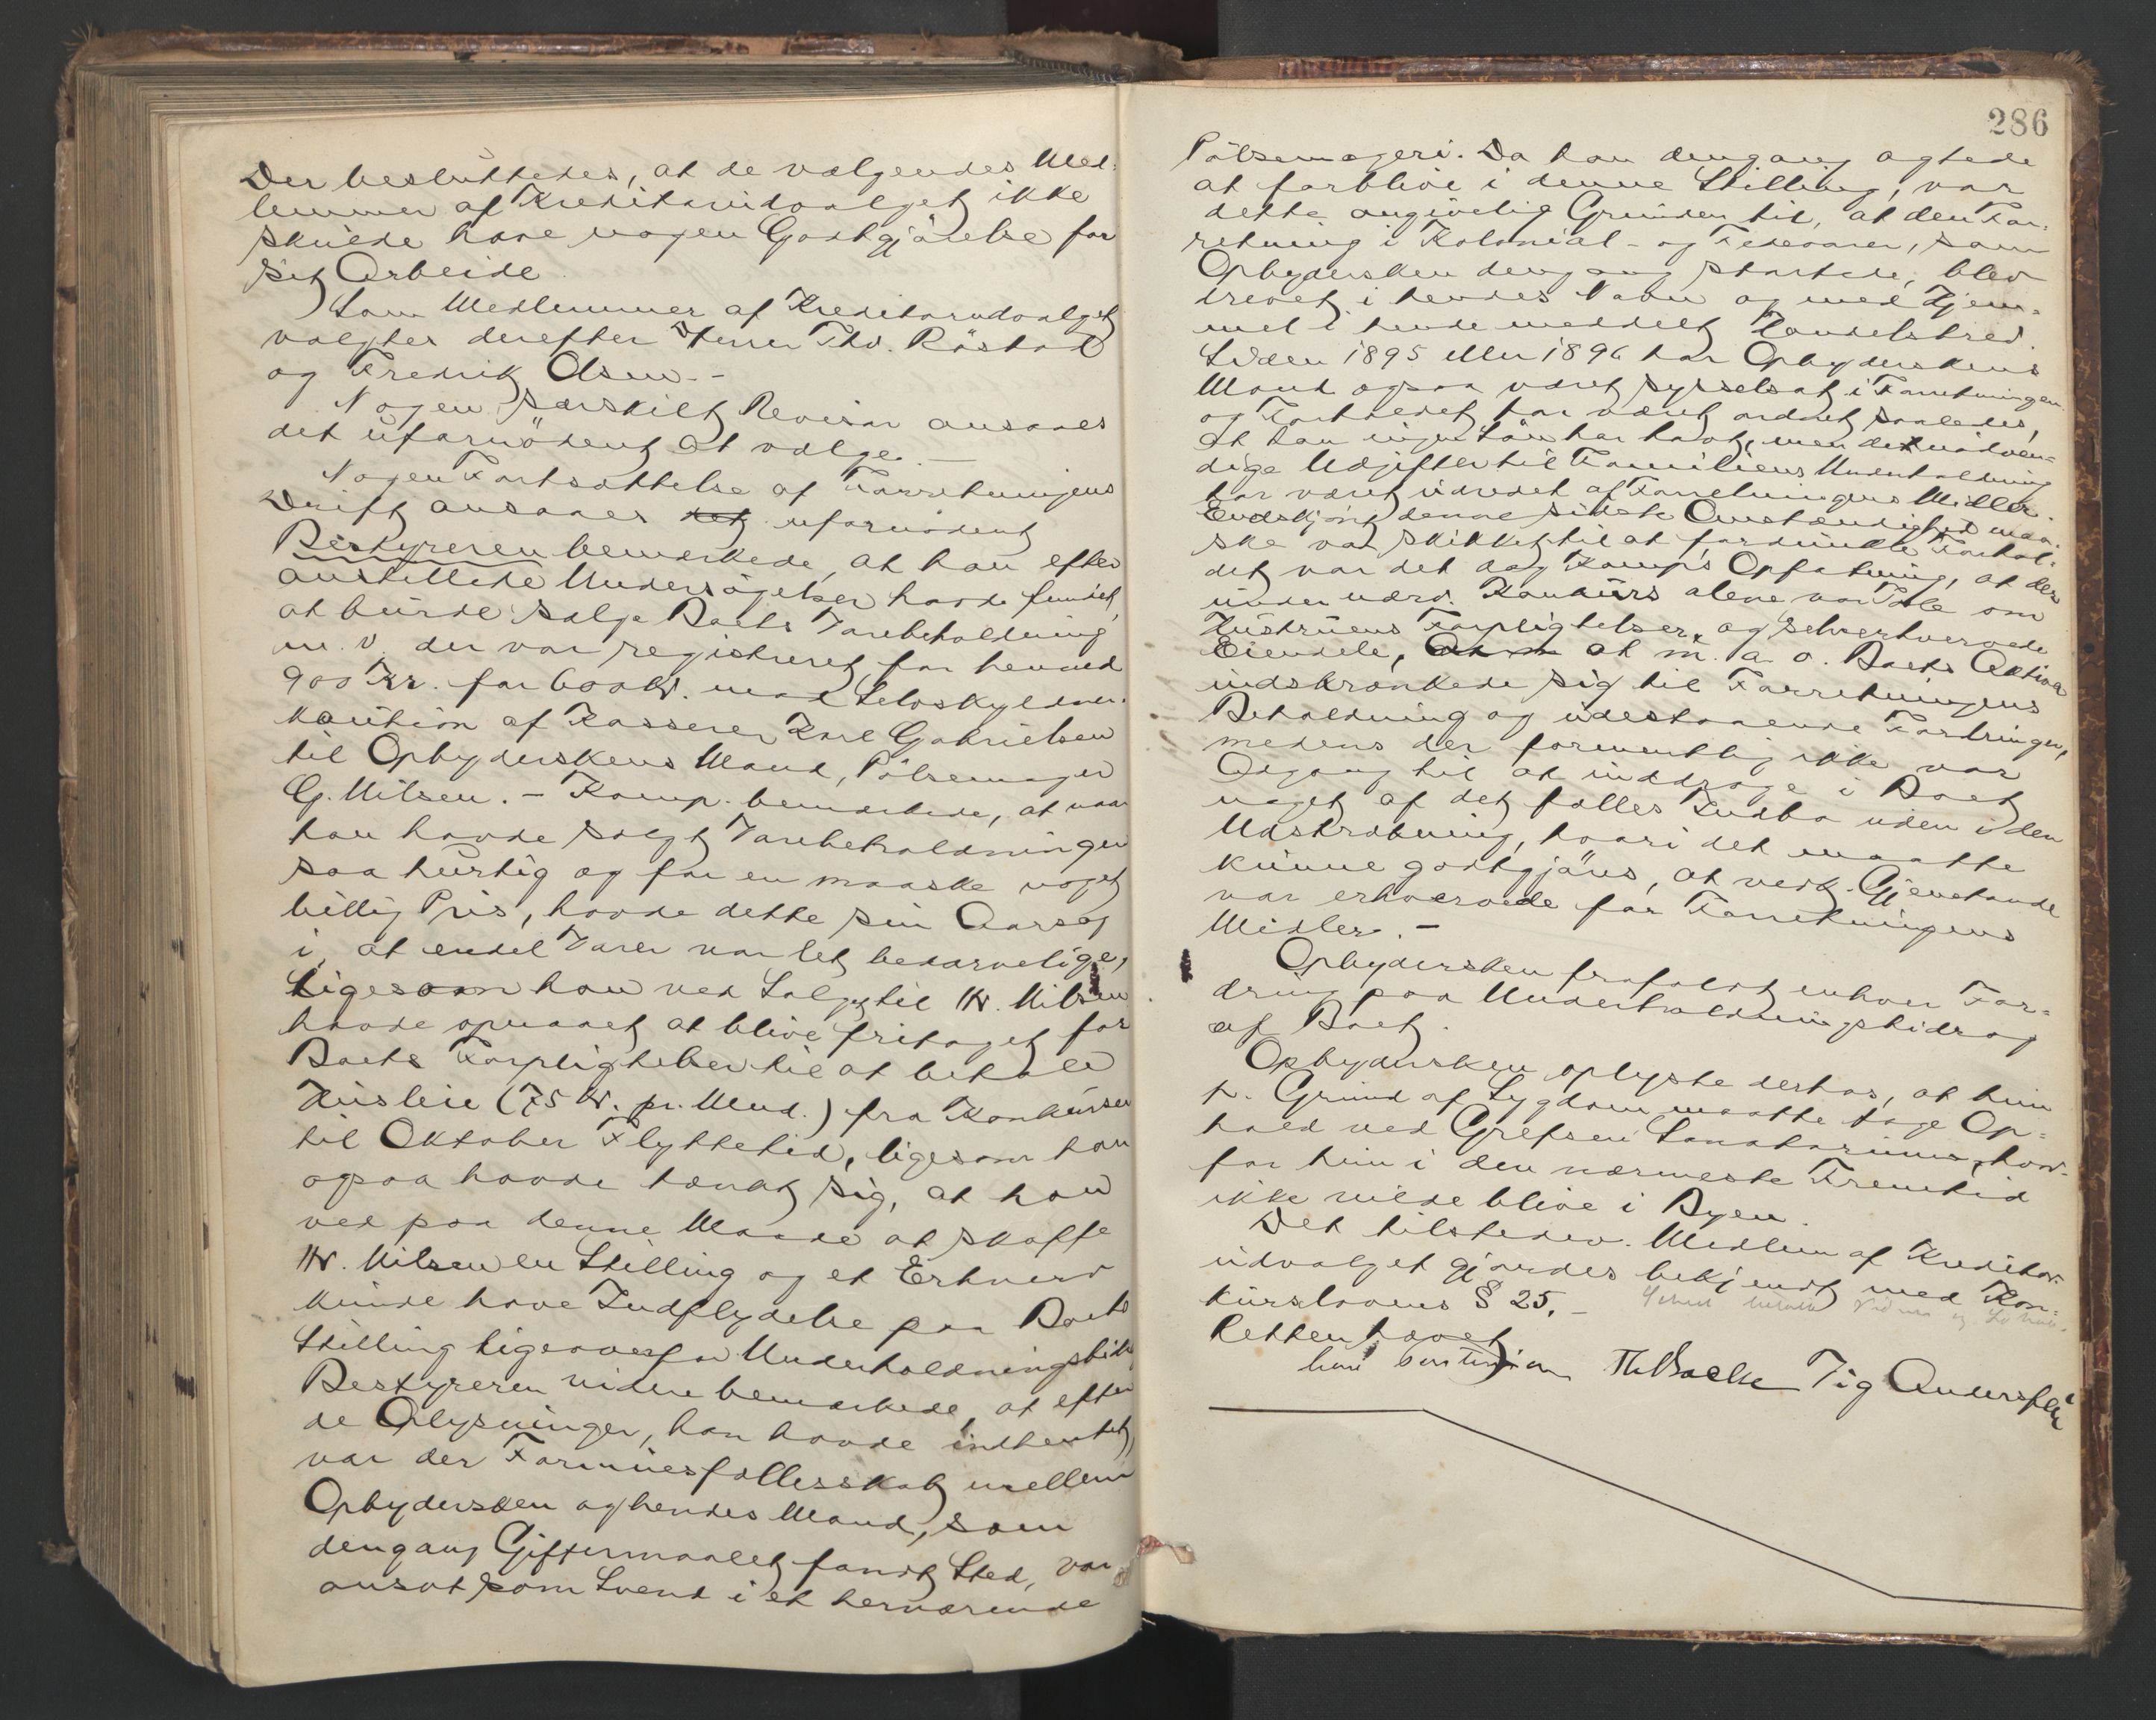 Der besluttedes, at de vælgendes Med-
lemmer af Kreditorudvalget ikke
skulde have nogen Godtgjörelse for
sit Arbeide.
Som Medlemmer af Kreditorudvalget
valgtes derefter Herrer Thv. Röstad
og Fredrik Olsen. -
Nogen særskilt Revisor ansaaes
det ufornödent at vælge. -
Nogen Fortsættelse af Forretningens
Drift ansaaes ufornödent
Bestyreren bemærkede, at han efter
anstillede Undersögelser havde fundet
at burde sælge Boets Varebeholdning
m. v. der var registreret for henved
900 Kr. for 600 Kr. mod Selvskyldner-
kaution af Kasserer Karl Gabrielsen
til Opbyderskens Mand, Pölsemager
G. Nilsen. - Komp. bemærkede, at naar
han havde solgt Varebeholdningen
saa hurtig og for en maaske noget
billig Pris, havde dette sin Aarsag
i, at endel Varer var let bedærvelige,
ligesom han ved Salget til Hr. Nilsen
havde opnaaet at blive fritaget for
Boets Forpligtelser til at betale
Husleie (75 Kr. pr. Mnd.) fra Konkursen
til Oktober Flyttetid, ligesom han
ogsaa havde tænkt sig, at han
ved paa denne Maade at skaffe
Hr. Nilsen en Stilling og et Erhverv
kunde have Indflydelse paa Boets
Stilling ligeoverfor Underholdningsbidr
Bestyreren videre bemærkede, at efter
de Oplysninger, han havde indhentet,
var der Formuesfællesskab mellem
Opbydersken og hendes Mand, som
dengang Giftermaalet fandt Sted, var
ansat som Svend i et herværende
286
Pölsemageri. Da han dengang agtede
at forblive i denne Stilling, var
dette angivelig Grunden til, at den For-
retning i Kolonial- og Fedevarer, som
Opbydersken dengang startede, blev
drevet i hendes Navn og med Hjem-
mel i hende meddelt Handelsbrev.
Siden 1895 eller 1896 har Opbyderskens
Mand ogsaa været sysselsat i Forretningen
og Forholdet har været ordnet saaledes,
at han ingen Lön har havt, men de nödven-
dige Udgifter til Familiens Underholdning
har været udredet af Forretningens Midler.
Endskjönt denne sidste Omstændighed maa-
ske var skikket til at fordunkle Forhol-
det var det dog Komp's Opfatning, at der
under nærv. Konkurs alene var Tale om
Hustruens Forpligtelser og selverhvervede
Eiendele, at m. a. o. Boets Aktiva
indskrænkede sig til Forretningens
Beholdning og udestaaende Fordringer,
medens der formentlig ikke var
Adgang til at inddrage i Boet
noget af det fælles Indbo uden i den
Udstrækning, hvori det maatte
kunne godtgjöres, at vedk. Gjenstande
var erhvervede for Forretningens
Midler. -
Opbydersken frafaldt enhver For-
dring paa Underholdningsbidrag
af Boet.
Opbydersken oplyste derhos, at hun
p. Grund af Sygdom maatte tage Op-
hold ved Grefsen Sanatorium, hvor-
for hun i den nærmeste Fremtid
ikke vilde blive i Byen.
Det tilstedev. Medlem af Kreditor-
udvalget gjordes bekjendt med Kon-
kurslovens § 25. -
Retten hævet
Th Bache Sig Andersen